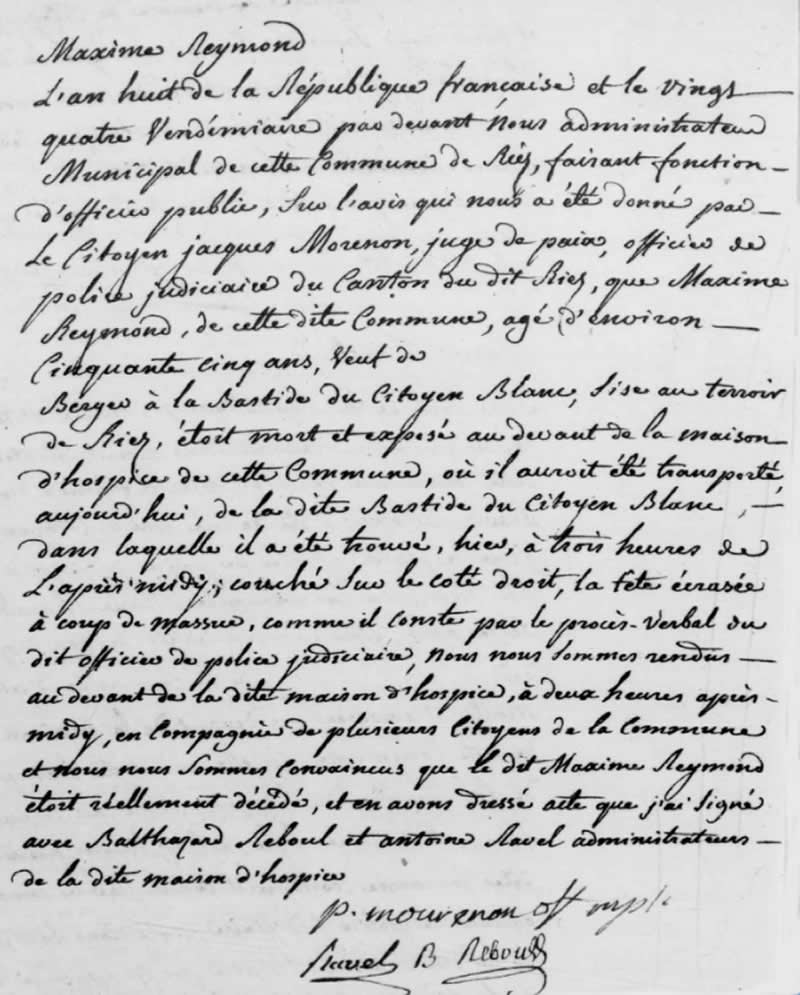 Maxime Reymond
L'an huit de la République française et le vingt
quatre Vendémiaire par devant Nous administrateur
Municipal de cette Commune de Riez, faisant fonction
d'officier public, sur l'avis qui nous a été donné par
Le Citoyen jacques Morenon, juge de paix, officier de
police judiciaire du Canton du dit Riez, que Maxime
Reymond, de cette dite Commune, agé d'environ
Cinquante cinq ans, Veuf de
Berger à la Bastide du Citoyen Blanc, sise au terroir
de Riez, étoit mort et exposé au devant de la maison
d'hospice de cette Commune, où il auroit été transporté
aujourd'hui, de la dite Bastide du Citoyen Blanc,
dans laquelle il a été trouvé, hier, à trois heures de
L'après midy; couché sur le coté droit, la tête écrasée
à coup de massue, comme il conste par le procès-verbal du
dit officier de police judiciaire, Nous nous sommes rendus
au devant de la dite maison d'hospice, à deux heures après-
midy, en Compagnie de plusieurs Citoyens de la Commune
et nous nous sommes Convaincus que le dit Maxime Reymond
étoit réellement décédé, et en avons dressé acte que j'ai signé
avec Balthazard Reboul et antoine Ravel administrateurs
de la dite maison d'hospice
p. mourenon off
Ravel B Reboul